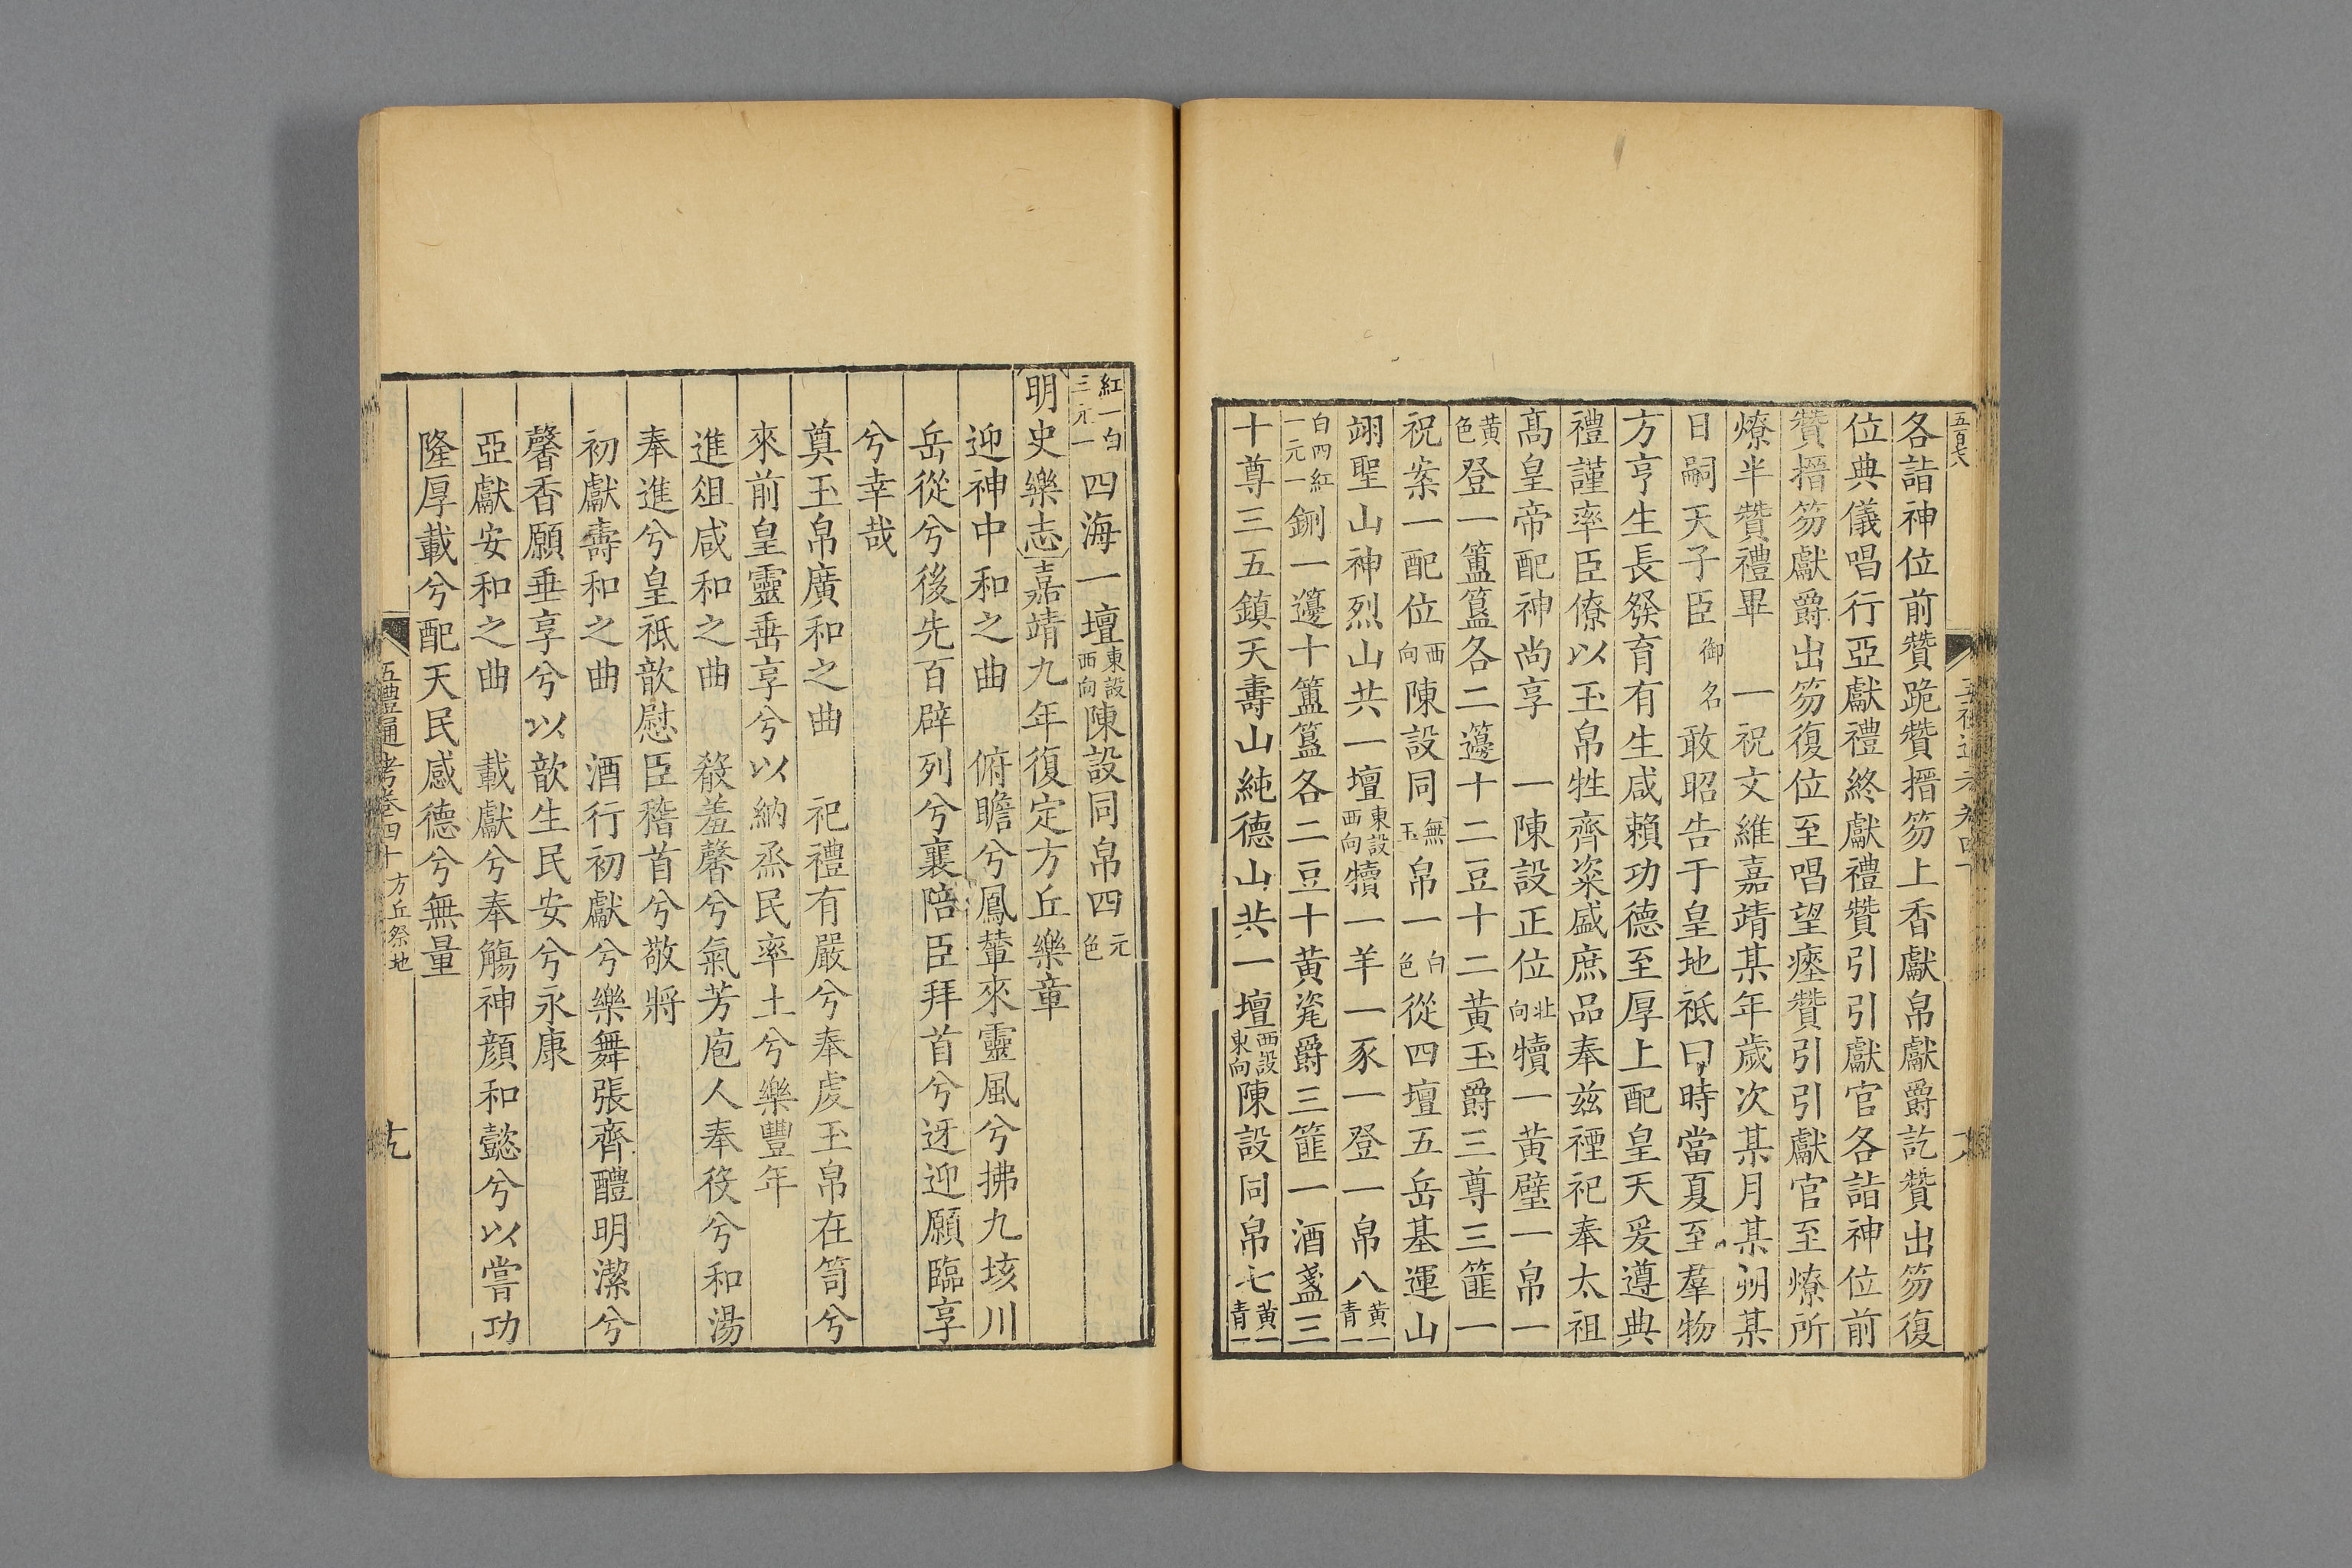 五百七六
各詣神位前贊跪贊搢笏上香獻帛獻爵訖贊出笏復
位典儀唱行亞獻禮終獻禮贊引引獻官各詣神位前
贊搢笏獻爵出笏復位至唱望瘞贊引引獻官至燎所
燎半贊禮畢　一祝文維嘉靖某年歲次某月某朔某
日嗣天子臣御名敢昭告于皇地祗曰時當夏至羣物
方亨生長發育有生咸賴功德至厚上配皇天爰遵典
禮謹率臣僚以玉帛牲齊粢盛庶品奉兹禋祀奉太祖
髙皇帝配神尚享　一陳設正位北向犢一黄璧一帛一
黄色登一簠簋各二籩十二豆十二黄玉爵三尊三篚一
祝案一配位西向陳設同無玉帛一白色從四壇五岳基運山
翊聖山神烈山共一壇東設西向犢一羊一豕一登一帛八黄一青一
白四紅一元一鉶一籩十簠簋各二豆十黄瓷爵三篚一酒盞三
十尊三五鎮天壽山純德山共一壇西設東向陳設同帛七黄一青一
紅一白三元一四海一壇東設西向陳設同帛四元色
明史樂志嘉靖九年復定方丘樂章
迎神中和之曲　俯瞻兮鳳輦來靈風兮拂九垓川
岳從兮後先百辟列兮襄陪臣拜首兮迓迎願臨享
兮幸哉
奠玉帛廣和之曲　祀禮有嚴兮奉虔玉帛在笥兮
來前皇靈垂享兮以納烝民率土兮樂豐年
進俎咸和之曲　殽羞馨兮氣芳庖人奉役兮和湯
奉進兮皇祗歆慰臣稽首兮敬將
初獻壽和之曲　酒行初獻兮樂舞張齊醴明潔兮
馨香願垂享兮以歆生民安兮永康
亞獻安和之曲　載獻兮奉觴神顔和懿兮以嘗功
隆厚載兮配天民感德兮無量
五禮通考卷四十　方丘祭地